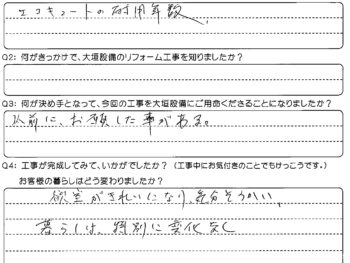 エコキュートの耐用年数、
Q2: 何がきっかけで、大垣設備のリフォーム工事を知りましたか?
Q3: 何が決め手となって、今回の工事を大垣設備にご用命くださることになりましたか?
以前に、お願した事がある。
Q4: 工事が完成してみて、いかがでしたか? (工事中にお気付きのことでもけっこうです。)
お客様の暮らしはどう変わりましたか?
欲室がきれいになり、気分そうかい、
暮らしは、特別に変化なく